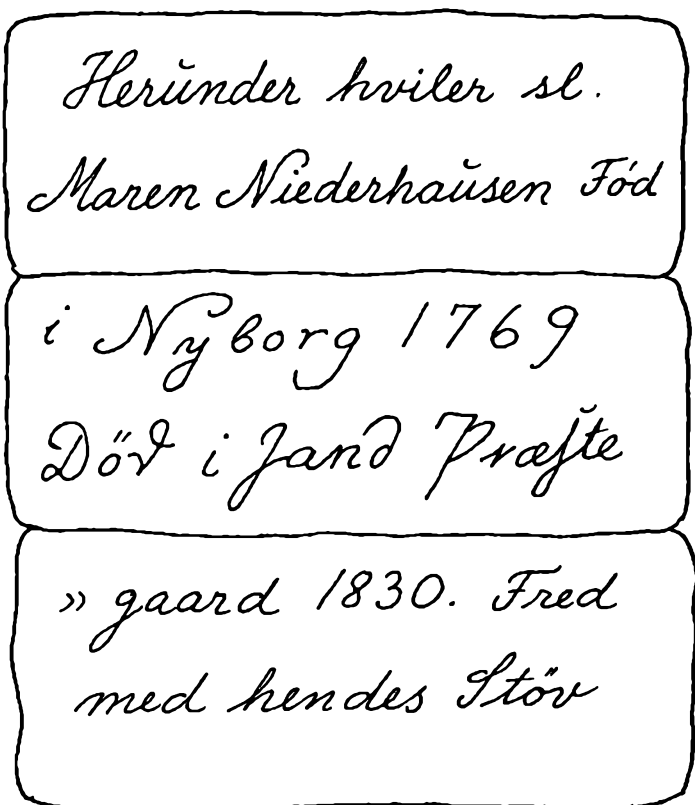 Herŭnder hviler sl.
Maren Niederhaŭsen Fód
i Nyborg 1769
Död i Jand Præste
» gaard 1830. Fred
med hendes Stöv